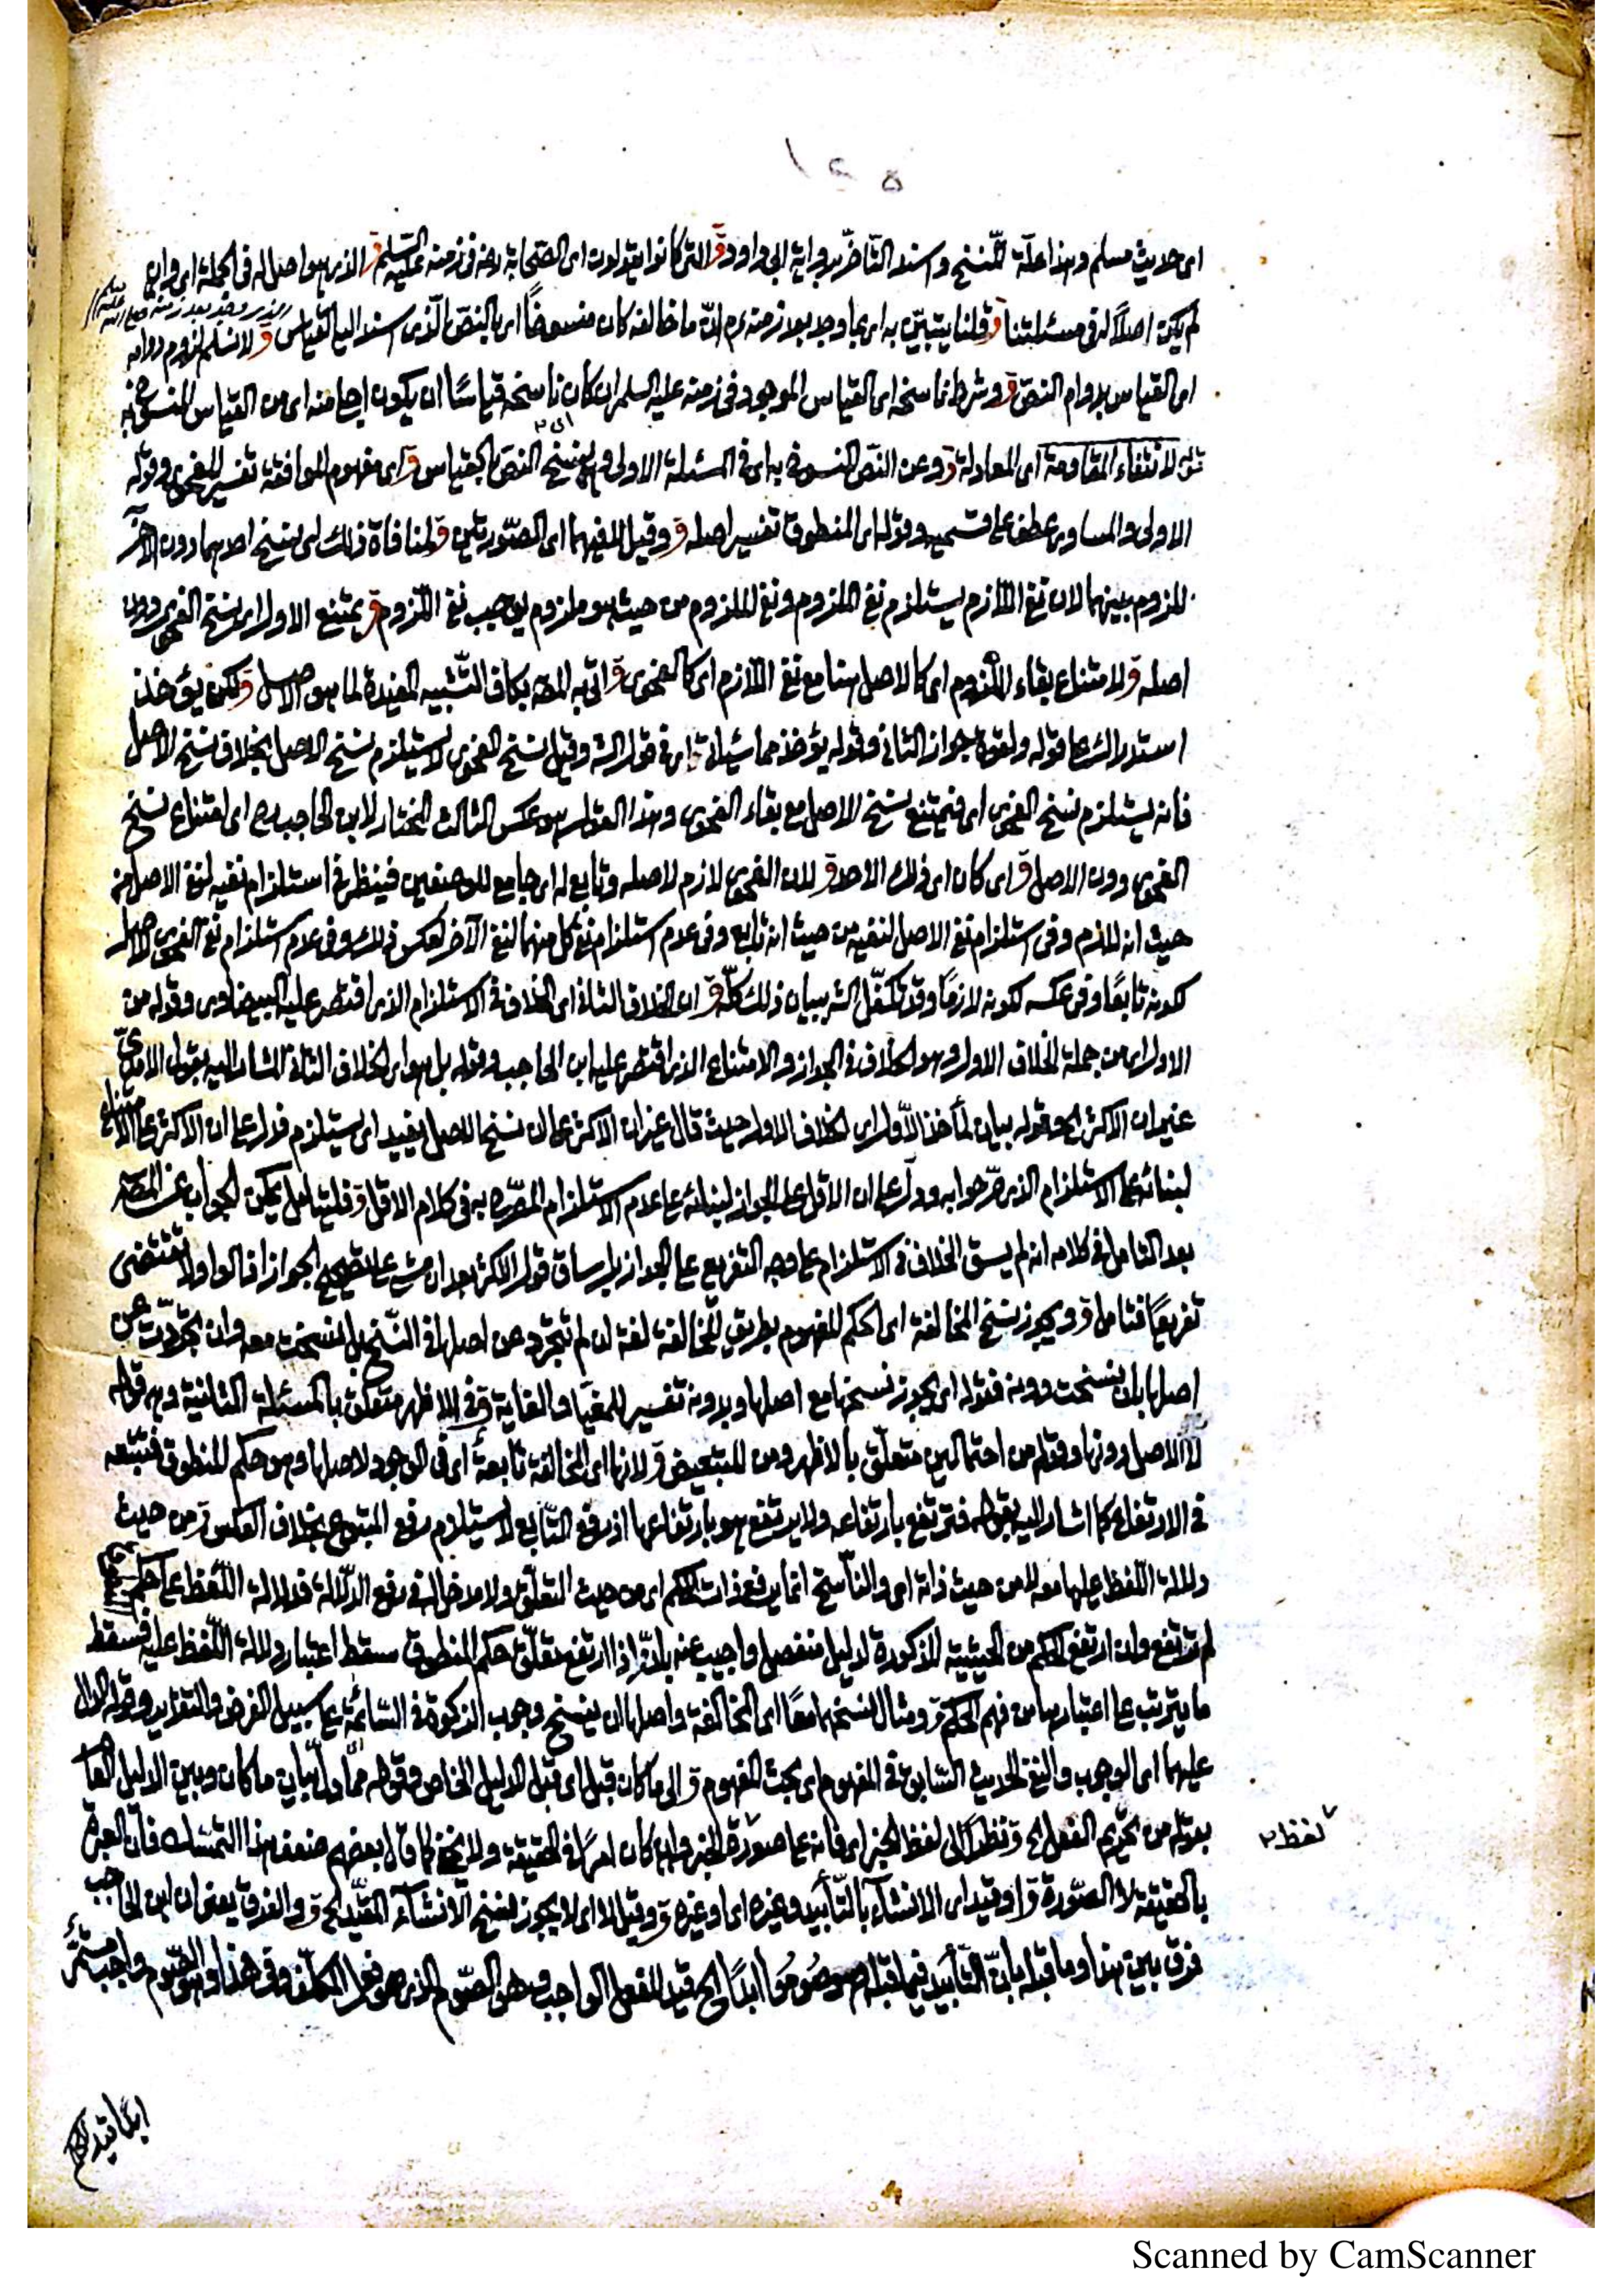 اى حديث مسلم وهذا علة للنسخ واسند التاخر برواية ابى داود ق التى كانوا يقولون اى الصحابة رضه فى زمنه عليه السلم ق الذى هو اصل له فى الجملة اى وان
لم يكن اصلا له فى مسئلتنا ق قلنا يتبين به اى بما وجد بعد زمنه م ان ما خالفه كان منسوخا اى بالنص الذى استند اليه القياس ق لا نسلم لزوم دوامه
اى القياس بدوام النص ق وشرط ناسخه اى القياس الموجود فى زمنه عليه السلم ان كان ناسخه قياسا ان يكون اجلى منه اى من القياس المنسوخ به
لانتفاء المقاومة اى المعادلة ق وعن النص المنسوخ به اى فى المسئلة الاولى وهى نسخ النص بالقياس ق اى مفهوم الموافقة تفسير للفحوى وقوله
الاولى والمساوى عطف على قسميه وقوله اى المنطوق تفسير اصله ق وقيل لا فيهما اى الصورتين ق لمنافاة ذلك اى نسخ احدهما دون الآخر
للزوم بينهما لان نفى اللازم يستلزم نفى الملزوم ونفى الملزوم من حيث هو ملزوم يوجب نفى اللزوم ق يمتنع الاول اى نسخ الفحوى دون
اصله ق لامتناع بقاء الملزوم اى كالاصل هنا مع نفى اللازم اى كالفحوى ق اتى به المصه بكاف التشبيه المفيدة لما هو الاصل ق لكن يؤخذ
استدراك على قوله ولقوة جواز الثانى وقوله يؤخذ مما سيأتى اى فى قول الشه وقيل نسخ الفحوى لا يستلزم نسخ الاصل بخلاف نسخ الاصل
فانه يستلزم نسخ الفحوى اى فيمتنع نسخ الاصل مع بقاء الفحوى وهذا القول هو عكس الثالث المختار لابن الحاجب وهو اى امتناع نسخ
الفحوى دون الاصل ق اى كان اى ذلك الاحد ق لان الفحوى لازم لاصله وتابع له اى جامع للوصفين فينظر فى استلزام نفيه لنفى الاصل من
حيث انه لازم وفى استلزام نفى الاصل لنفيه من حيث انه تابع وفى عدم استلزام نفى كل منهما لنفى الآخر لعكس ذلك وفى عدم استلزام نفى الفحوى لاصله
لكونه تابعا وفى عكسه لكونه لازما وقد تكفل الشه ببيان ذلك كله ق ان الخلاف الثانى اى الخلاف فى الاستلزام الذى اقتصر عليه البيضاوى وقوله من
الاول اى من جملة الخلاف الاول وهو الخلاف فى الجواز والامتناع الذى اقتصر عليه ابن الحاجب وقوله بل هو اى الخلاف الثانى المشار اليه بقول الآمدى
غير ان الاكثر الخ وقوله بيان لمأخذ الاول اى الخلاف الاول حيث قال غير ان الاكثر على ان نسخ الاصل يفيد اى يستلزم فدل على ان الاكثر على الامتناع
لبنائه على الاستلزام الذى صرحوا به ودل على ان الاقل على الجواز لبنائه على عدم الاستلزام المصرح به فى كلام الاقل ق فليتامل يمكن الجواب عن المصه
بعد التامل فى كلامه انه لم يسق الخلاف فى الاستلزام على وجه التفريع على الجواز بل ساق قول الاكثر بعد ان مشى على تصحيح الجواز اذ الواو لا تقتضى
تفريعا فتامل ق ويجوز نسخ المخالفة اى الحكم المفهوم بطريق المخالفة لغة ان لم تتجرد عن اصلها فى النسخ بل نسخت معه وان تجردت عن
اصلها بان نسخت دونه فقوله اى يجوز نسخها مع اصلها وبدونه تفسير للمغيا والغاية ق فى الاظهر متعلق بالمسئلة الثانية وهى قوله
لا الاصل دونها وقوله من احتمالين متعلق بالاظهر ومن للتبعيض ق لانها اى المخالفة تابعة اى فى الوجود لاصلها وهو حكم المنطوق فتتبعه
فى الارتفاع كما اشار اليه بقوله فترتفع بارتفاعه ولا يرتفع هو بارتفاعها اذ رفع التابع لا يستلزم رفع المتبوع بخلاف العكس ق من حيث
دلالة اللفظ عليها معه لا من حيث ذاته اى والناسخ انما يرفع ذات الحكم اى من حيث التعلق ولا مدخل له فى رفع الدلالة فدلالة اللفظ على حكم
لم ترتفع وان ارتفع الحكم من الحيثية المذكورة لدليل منفصل واجيب عنه بانه اذا ارتفع تعلق حكم المنطوق سقط اعتبار دلالة اللفظ عليه فسقط
ما يترتب على اعتبارها من فهم الحكم ق ومثال نسخهما معا اى المخالفة واصلها ان ينسخ وجوب الزكوة فى السائمة على سبيل الفرض والتقدير وقوله الدال
عليهما اى الوجوب والنفى الحديث السابق فى المفهوم اى بحث المفهوم ق الى ما كان قبل اى قبل الدليل الخاص وقوله مما دل بيان ما كان وبين الدليل العام
بقوله من تحريم الفعل الخ ق نظرا الى لفظ الخبر اى فانه على صورة الخبر وان كان امرا فى الحقيقة ولا يخفى كما قال بعضهم ضعف هذا التمسك فان العبرة
بالحقيقة لا الصورة ق او قيد اى الانشاء بالتأبيد وغيره اى او غيره ق وقيل لا اى لا يجوز نسخ الانشاء المقيد الخ ق والفرق يعنى ان ابن الحاجب
فرق بين هذا وما قبله بان التأبيد فيما قبله صوموا ابدا الخ قيد للفعل الواجب وهو الصوم الذى هو فعل المكلف وفى هذا وهو الصوم واجب مستمر
لفظ
ابدا قيد
Scanned by CamScanner